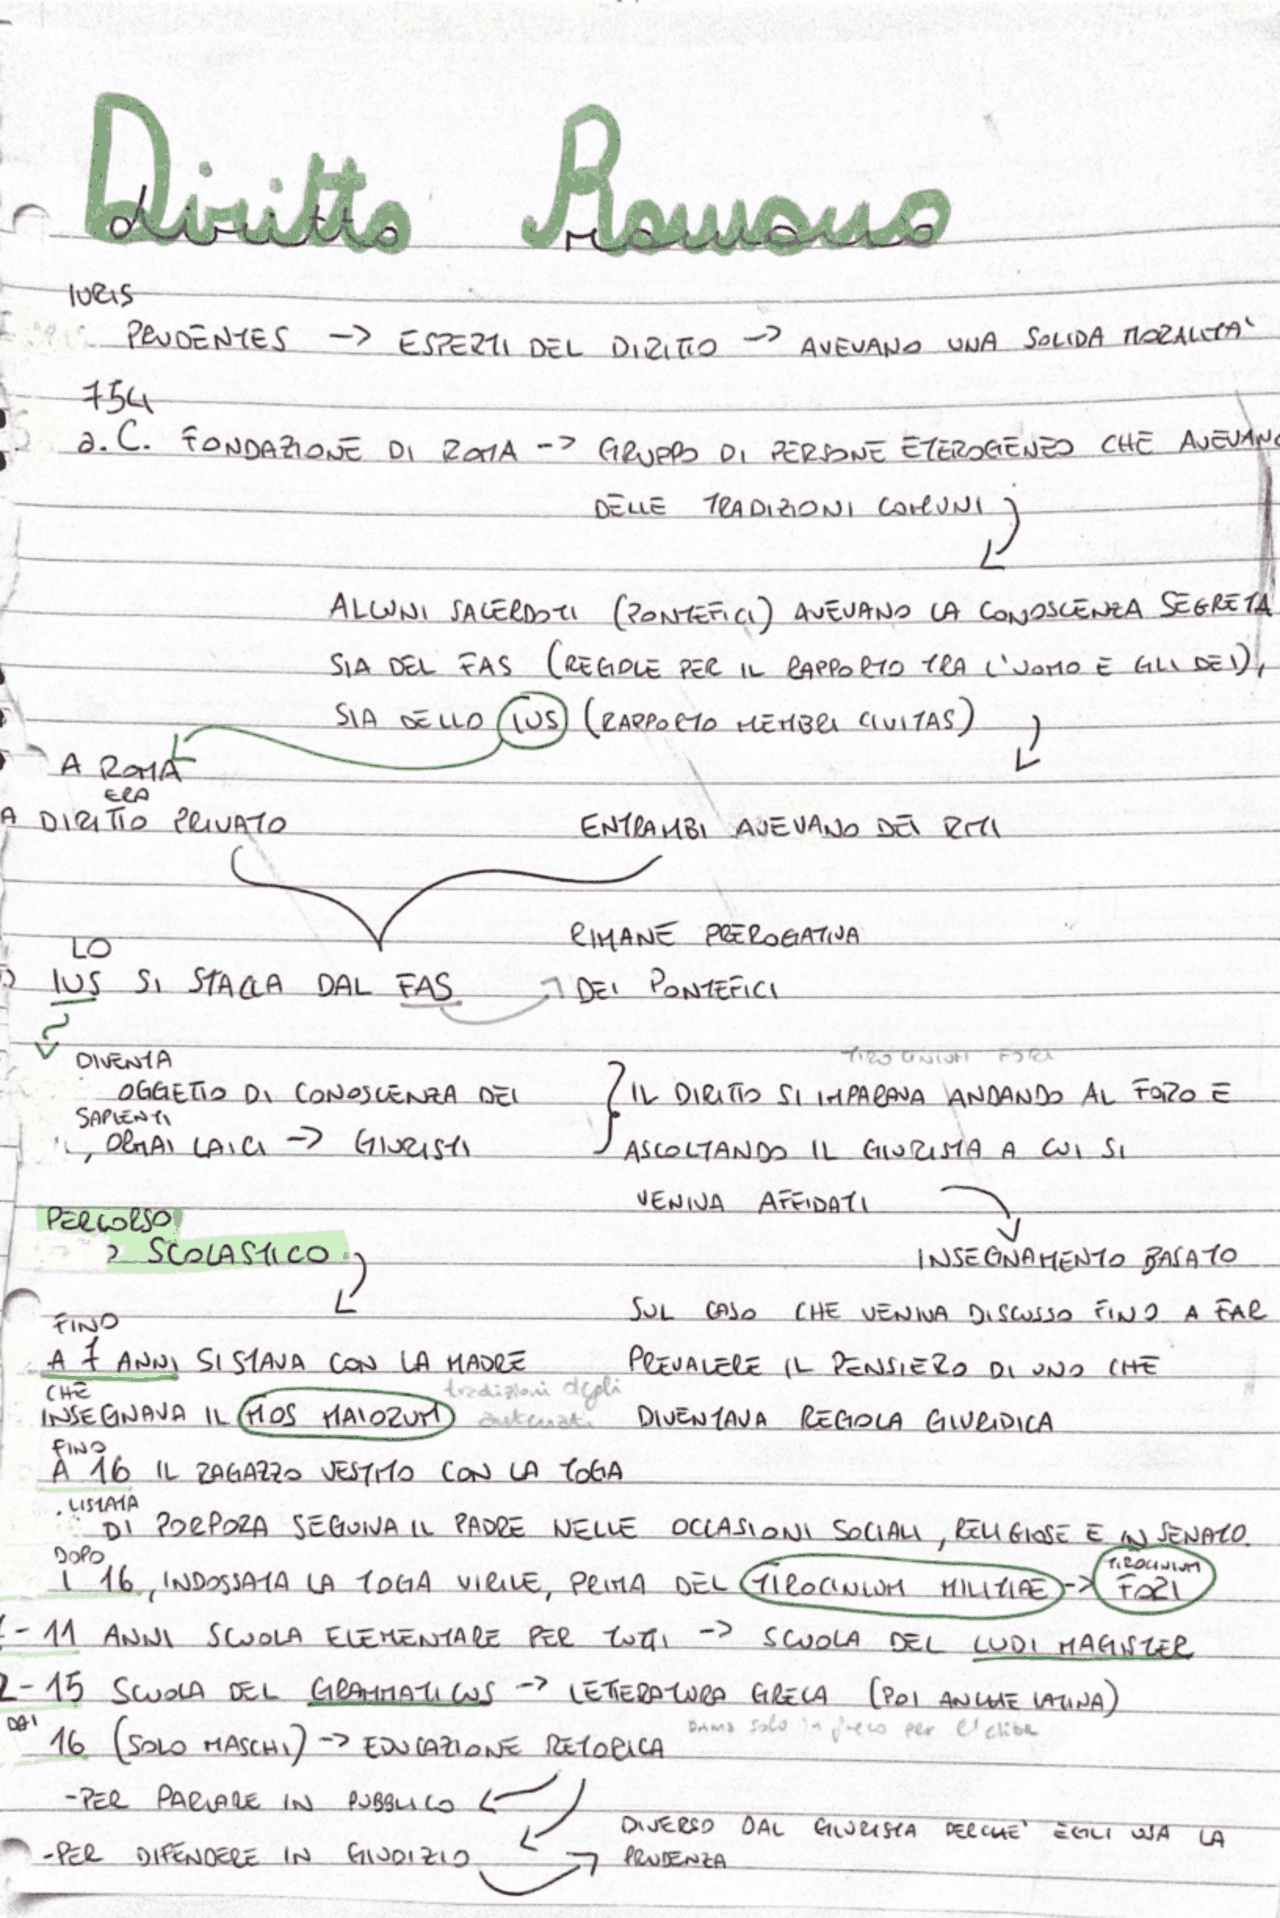 Diritto Romano
diritto romano
IURIS
PRUDENTES -> ESPERTI DEL DIRITTO -> AVEVANO UNA SOLIDA MORALITA'
754
a.C. FONDAZIONE DI ROMA -> GRUPPO DI PERSONE ETEROGENEO CHE AVEVANO
DELLE TRADIZIONI COMUNI
ALCUNI SACERDOTI (PONTEFICI) AVEVANO LA CONOSCENZA SEGRETA
SIA DEL FAS (REGOLE PER IL RAPPORTO TRA L'UOMO E GLI DEI),
SIA DELLO IUS (RAPPORTO MEMBRI CIVITAS)
A ROMA
ERA
A DIRITTO PRIVATO
ENTRAMBI AVEVANO DEI RITI
LO
IUS SI STACCA DAL FAS
RIMANE PREROGATIVA
DEI PONTEFICI
DIVENTA
OGGETTO DI CONOSCENZA DEI
SAPIENTI
, ORMAI LAICI -> GIURISTI
TIROCINIUM FORI
IL DIRITTO SI IMPARAVA ANDANDO AL FORO E
ASCOLTANDO IL GIURISTA A CUI SI
VENIVA AFFIDATI
INSEGNAMENTO BASATO
SUL CASO CHE VENIVA DISCUSSO FINO A FAR
PREVALERE IL PENSIERO DI UNO CHE
DIVENTAVA REGOLA GIURIDICA
PERCORSO
SCOLASTICO
FINO
A 7 ANNI SI STAVA CON LA MADRE
CHE
INSEGNAVA IL MOS MAIORUM
tradizioni degli
antenati
FINO
A 16 IL RAGAZZO VESTITO CON LA TOGA
LISTATA
DI PORPORA SEGUIVA IL PADRE NELLE OCCASIONI SOCIALI, RELIGIOSE E IN SENATO.
DOPO
I 16, INDOSSATA LA TOGA VIRILE, PRIMA DEL TIROCINIUM MILITIAE -> TIROCINIUM FORI
- 11 ANNI SCUOLA ELEMENTARE PER TUTTI -> SCUOLA DEL LUDI MAGISTER
2-15 SCUOLA DEL GRAMMATICUS -> LETTERATURA GRECA (POI ANCHE LATINA)
DAI
16 (SOLO MASCHI) -> EDUCAZIONE RETORICA
solo in greco per l'elite
-PER PARLARE IN PUBBLICO
-PER DIFENDERE IN GIUDIZIO
DIVERSO DAL GIURISTA PERCHE' EGLI USA LA
PRUDENZA